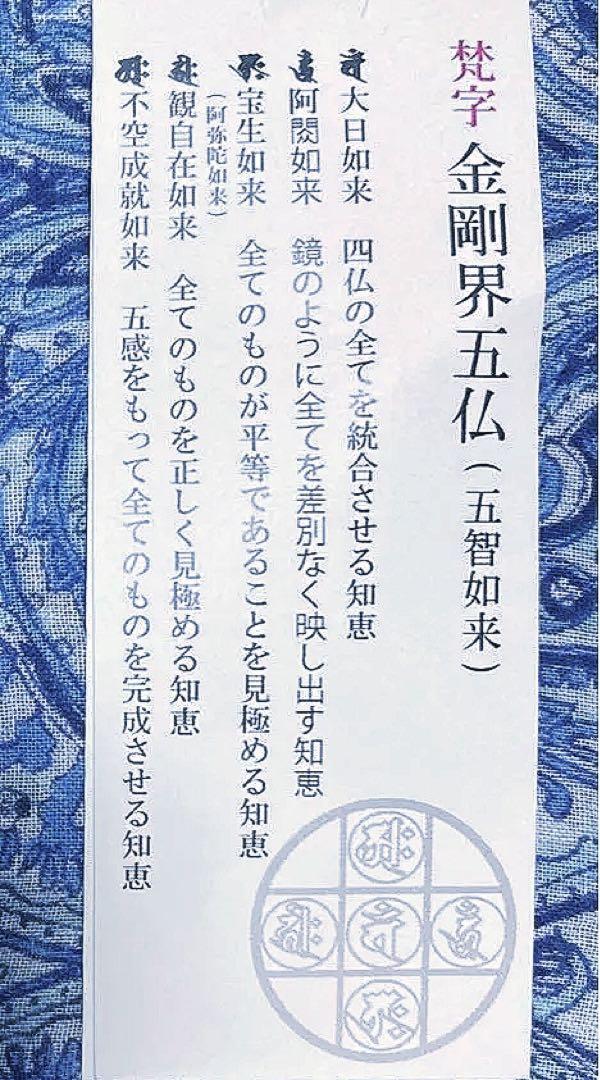 梵字 金剛界五仏（五智如来）
大日如来　四仏の全てを統合させる知恵
阿閦如来　鏡のように全てを差別なく映し出す知恵
宝生如来　全てのものが平等であることを見極める知恵
（阿弥陀如来）
観自在如来　全てのものを正しく見極める知恵
不空成就如来　五感をもって全てのものを完成させる知恵